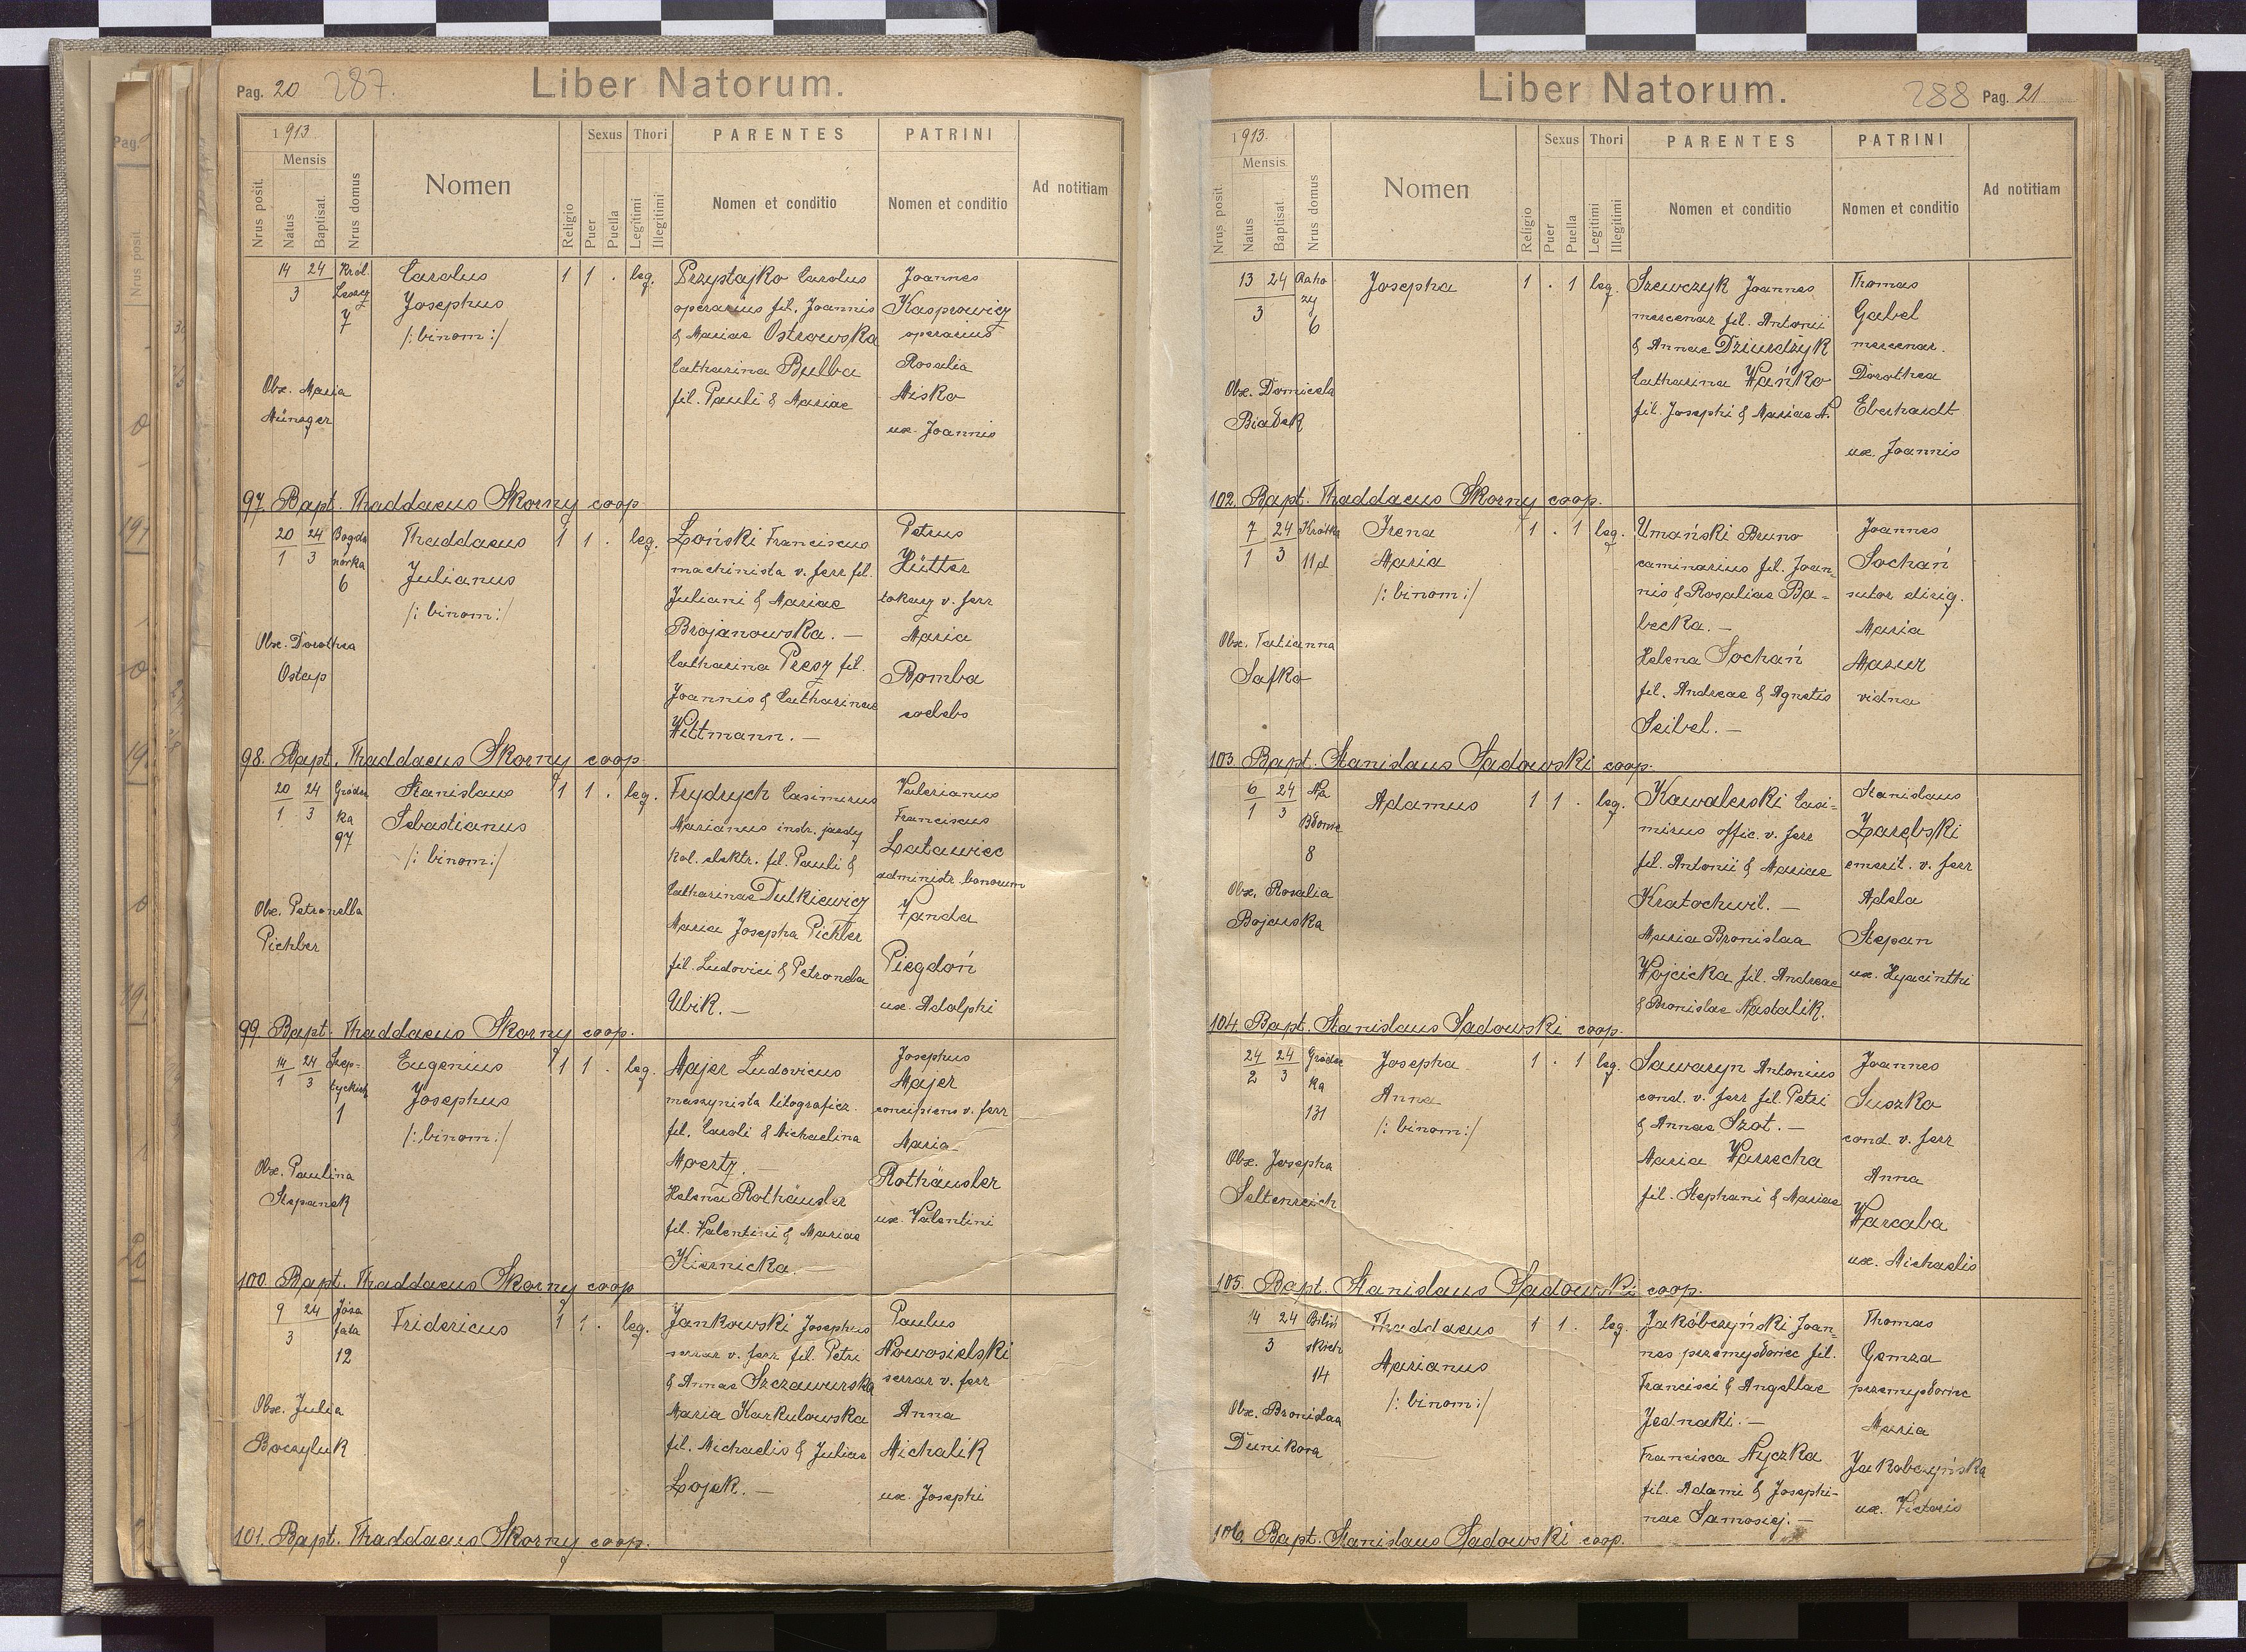 Pag. 20 287.
Liber Natorum.
1913
Mensis
Nrus posit.
Natus
Baptisat.
Nrus domus
Nomen
Religio
Sexus
Puer
Puella
Thori
Legitimi
Illegitimi
PARENTES
Nomen et conditio
PATRINI
Nomen et conditio
Ad notitiam
14 24 Król.
3 Leszcz
7
Carolus
Josephus
/: binom :/
1 1 . leg.
Przystajko Carolus
operarius fil. Joannis
& Mariae Ostrowska
Catharina Bulba
fil. Pauli & Mariae
Joannes
Kasprowicz
operarius
Rosalia
Misko
ux. Joannis
Obx. Maria
Münzger
97. Bapt. Thaddaeus Skorny coop
20 24 Bogda
1 3 nówka
6
Thaddaeus
Julianus
/: binom :/
1 1 . leg.
Łoński Franciscus
machinista v. ferr fil.
Juliani & Mariae
Brojanowska. —
Catharina Piesz fil.
Joannis & Catharinae
Wittmann. —
Petrus
Hütter
tokarz v. ferr
Maria
Bomba
coelebs
Obx. Dorothea
Ostap
98. Bapt. Thaddaeus Skorny coop
20 24 Gródec
1 3 ka
97
Stanislaus
Sebastianus
/: binom :/
1 1 . leg.
Frydrych Casimirus
Marianus instr. jazdy
kol. elektr. fil. Pauli &
Catharinae Dutkiewicz
Maria Josepha Pichler
fil. Ludovici & Petronela
Ubik. —
Valerianus
Franciscus
Latawiec
administr. bonorum
Vanda
Piegdoń
ux. Adolphi
Obx. Petronella
Pichler
99. Bapt. Thaddaeus Skorny coop.
14 24 Szep-
1 3 tyckich
1
Eugenius
Josephus
/: binom :/
1 1 . leg.
Majer Ludovicus
maszynista litograficz.
fil. Caroli & Michaelina
Moertz. —
Helena Rothäusler
fil. Valentini & Mariae
Kiernicka. —
Josephus
Majer
concipiens v. ferr
Maria
Rothäusler
ux. Valentini
Obx. Paulina
Stepanek
100. Bapt. Thaddaeus Skorny coop
9 24 Józa
3 fata
12
Fridericus
1 1 . leg.
Jankowski Josephus
serrar v. ferr fil. Petri
& Annae Szczawurska
Maria Karkulowska
fil. Michaelis & Juliae
Łojek. —
Paulus
Nowosielski
serrar v. ferr
Anna
Michalik
ux. Josephi
Obx. Julia
Boczyluk
101. Bapt. Thaddaeus Skorny coop.
Liber Natorum.
288 Pag. 21
1913.
Mensis
Nrus posit.
Natus
Baptisat.
Nrus domus
Nomen
Religio
Sexus
Puer
Puella
Thori
Legitimi
Illegitimi
PARENTES
Nomen et conditio
PATRINI
Nomen et conditio
Ad notitiam
13 24 Raho
3 zy
6
Josepha
1 . 1 leg.
Szewczyk Joannes
mercenar fil. Antonii
& Annae Dziurdzyk
Catharina Wańko
fil. Josephi & Mariae N.
Thomas
Gabel
mercenar.
Dorothea
Eberhardt
ux. Joannis
Obx. Domicela
Białek
102. Bapt. Thaddaeus Skorny coop.
7 24 Krótka
1 3 11d
Irena
Maria
/: binom :/
1 . 1 leg.
Umański Bruno
caminarius fil. Joan-
nis & Rosaliae Ba-
becka. —
Helena Sochań
fil. Andreae & Agnetis
Seibel. —
Joannes
Sochań
sutor dirig.
Maria
Mazur
vidua
Obx. Tatianna
Safko
103. Bapt. Stanislaus Sadowski coop.
6 24 Na
1 3 Błonie
8
Adamus
1 1 . leg.
Kawalerski Casi-
mirus offic. v. ferr
fil. Antonii & Mariae
Kratochwil. —
Maria Bronislaa
Wojcicka fil. Andreae
& Bronislae Nastalik.
Stanislaus
Zarębski
emerit. v. ferr
Adela
Stepan
ux. Hyacinthi
Obx. Rosalia
Bojarska
104. Bapt. Stanislaus Sadowski coop.
24 24 Gródec
2 3 ka
131
Josepha
Anna
/: binom :/
1 . 1 leg.
Sawaryn Antonius
cond. v. ferr fil. Petri
& Annae Szot. —
Maria Warzecha
fil. Stephani & Mariae
Joannes
Suszko
cond. v. ferr
Anna
Warcaba
ux. Michaelis
Obx. Josepha
Seltenreich
105. Bapt. Stanislaus Sadowski coop.
14 24 Biliń
3 skich
14
Thaddaeus
Marianus
/: binom :/
1 1 . leg.
Jakóbczyński Joan-
nes przemysłowiec fil.
Francisci & Angellae
Jednaki. —
Francisca Nyczka
fil. Adami & Josephi-
nae Samosiej. —
Thomas
Gemza
przemysłowiec
Maria
Jakobczyńska
ux. Victoris
Obx. Bronislaa
Dunikowa
106. Bapt. Stanislaus Sadowski coop.